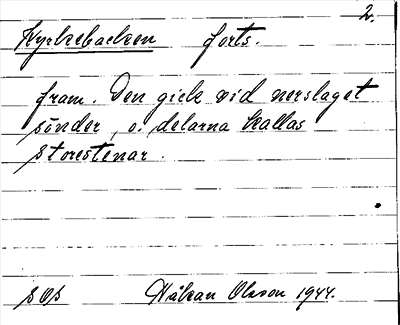 2.
Kyrkebacken forts.
fram. Den gick vid nerslaget
sönder, o. delarna kallas
Storestenar.
SOS Håkan Olsson 1944.